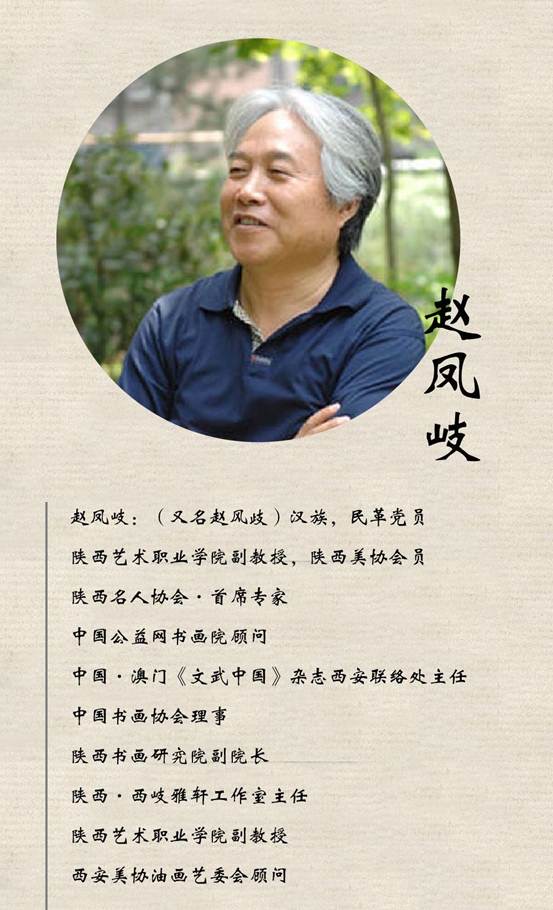 赵凤岐
赵凤岐：（又名赵风歧）汉族，民革党员
陕西艺术职业学院副教授，陕西美协会员
陕西名人协会·首席专家
中国公益网书画院顾问
中国·澳门《文武中国》杂志西安联络处主任
中国书画协会理事
陕西书画研究院副院长
陕西·西岐雅轩工作室主任
陕西艺术职业学院副教授
西安美协油画艺委会顾问